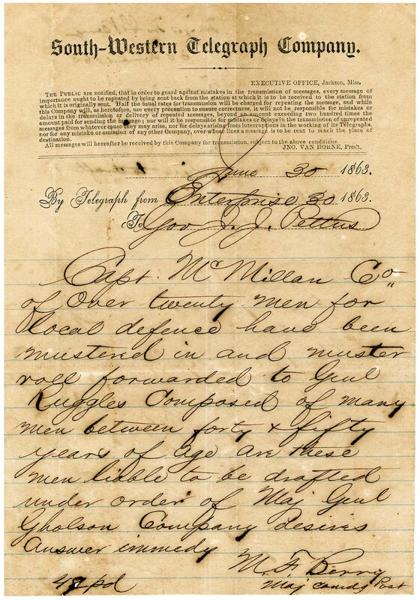 South-Western Telegraph Company.
EXECUTIVE OFFICE, Jackson, Miss.
THE PUBLIC are notified, that in order to guard against mistakes in the transmission of messages, every message of
importance ought to be repeated by being sent back from the station at which it is to be received to the station from
which it is originally sent. Half the usual rates for transmission will be charged for repeating the message, and while
this Company will, as heretofore, use every precaution to ensure correctness, it will not be responsible for mistakes or
delays in the transmission or delivery of repeated messages, beyond an amount exceeding two hundred times the
amount paid for sending the message; nor will it be responsible for mistakes or delays in the transmission of unrepeated
messages from whatever cause they may arise, nor for delays arising from interruptions in the working of its Telegraphs,
nor for any mistake or omission of any other Company, over whose lines a message is to be sent to reach the place of
destination.
All messages will hereafter be received by this Company for transmission, subject to the above conditions.
JNO. VAN HORNE, Pres't.
June 30 1863.
By Telegraph from Enterprise 30 1863.
To Gov J. J. Pettus
Capt McMillan Co"
of Over twenty men for
local defence have been
mustered in and muster
roll forwarded to Genl
Ruggles Composed of many
men between forty & fifty
years of age are these
men liable to be drafted
under order of Maj Genl
Gholson Company desires
answer immedy
M. F. Berry
Maj comdg Post
42 pd